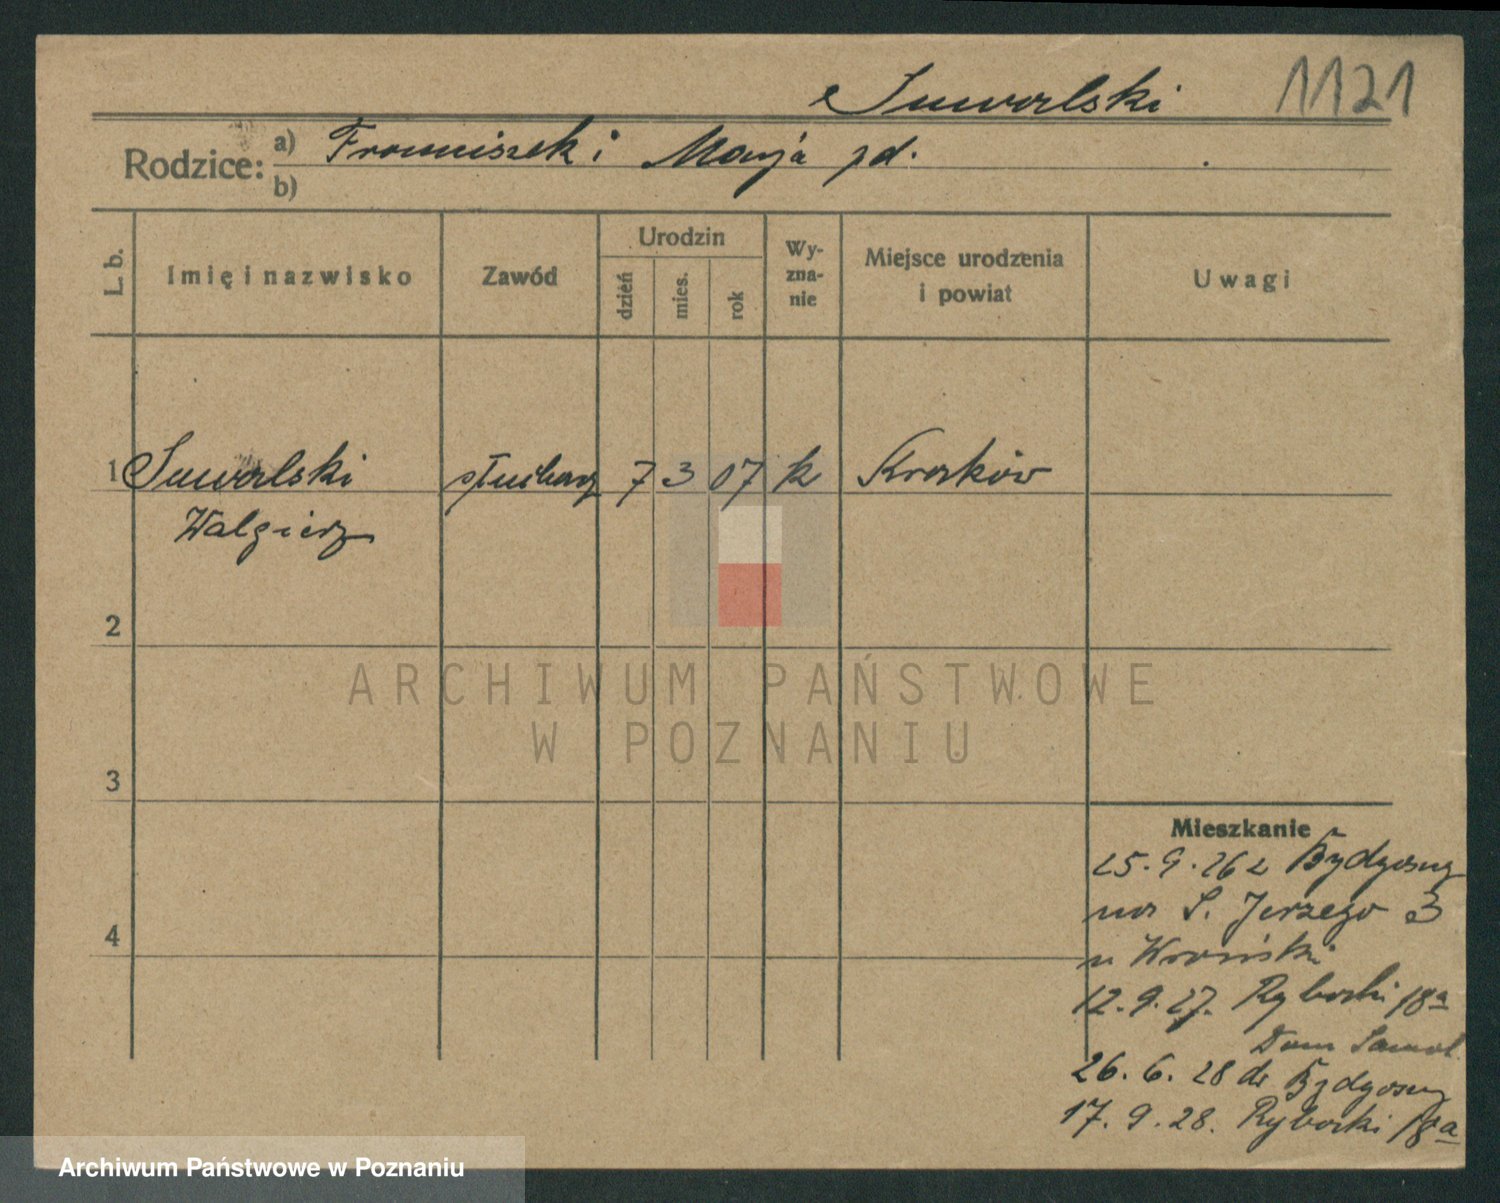 Suwalski 1121
Rodzice: a) Franciszek i Marja zd.
b)
L. b.
Imię i nazwisko
Zawód
Urodzin
dzień
mies.
rok
Wy-
zna-
nie
Miejsce urodzenia
i powiat
Uwagi
1 Suwalski słuchacz 7 3 07 k Kraków
Walgierz
2
3
4
Mieszkanie
25.9.26 z Bydgoszcz
na S. Jerzego 3
u Wroński
12.9.27. Rybaki 18a
Dom
26.6.28 do Bydgoszcz
17.9.28. Rybaki 18a
ARCHIWUM PAŃSTWOWE
W POZNANIU
Archiwum Państwowe w Poznaniu